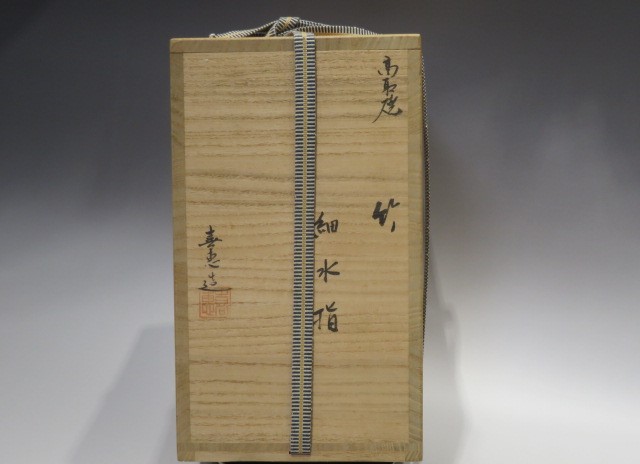 高取焼
竹
細水指
造